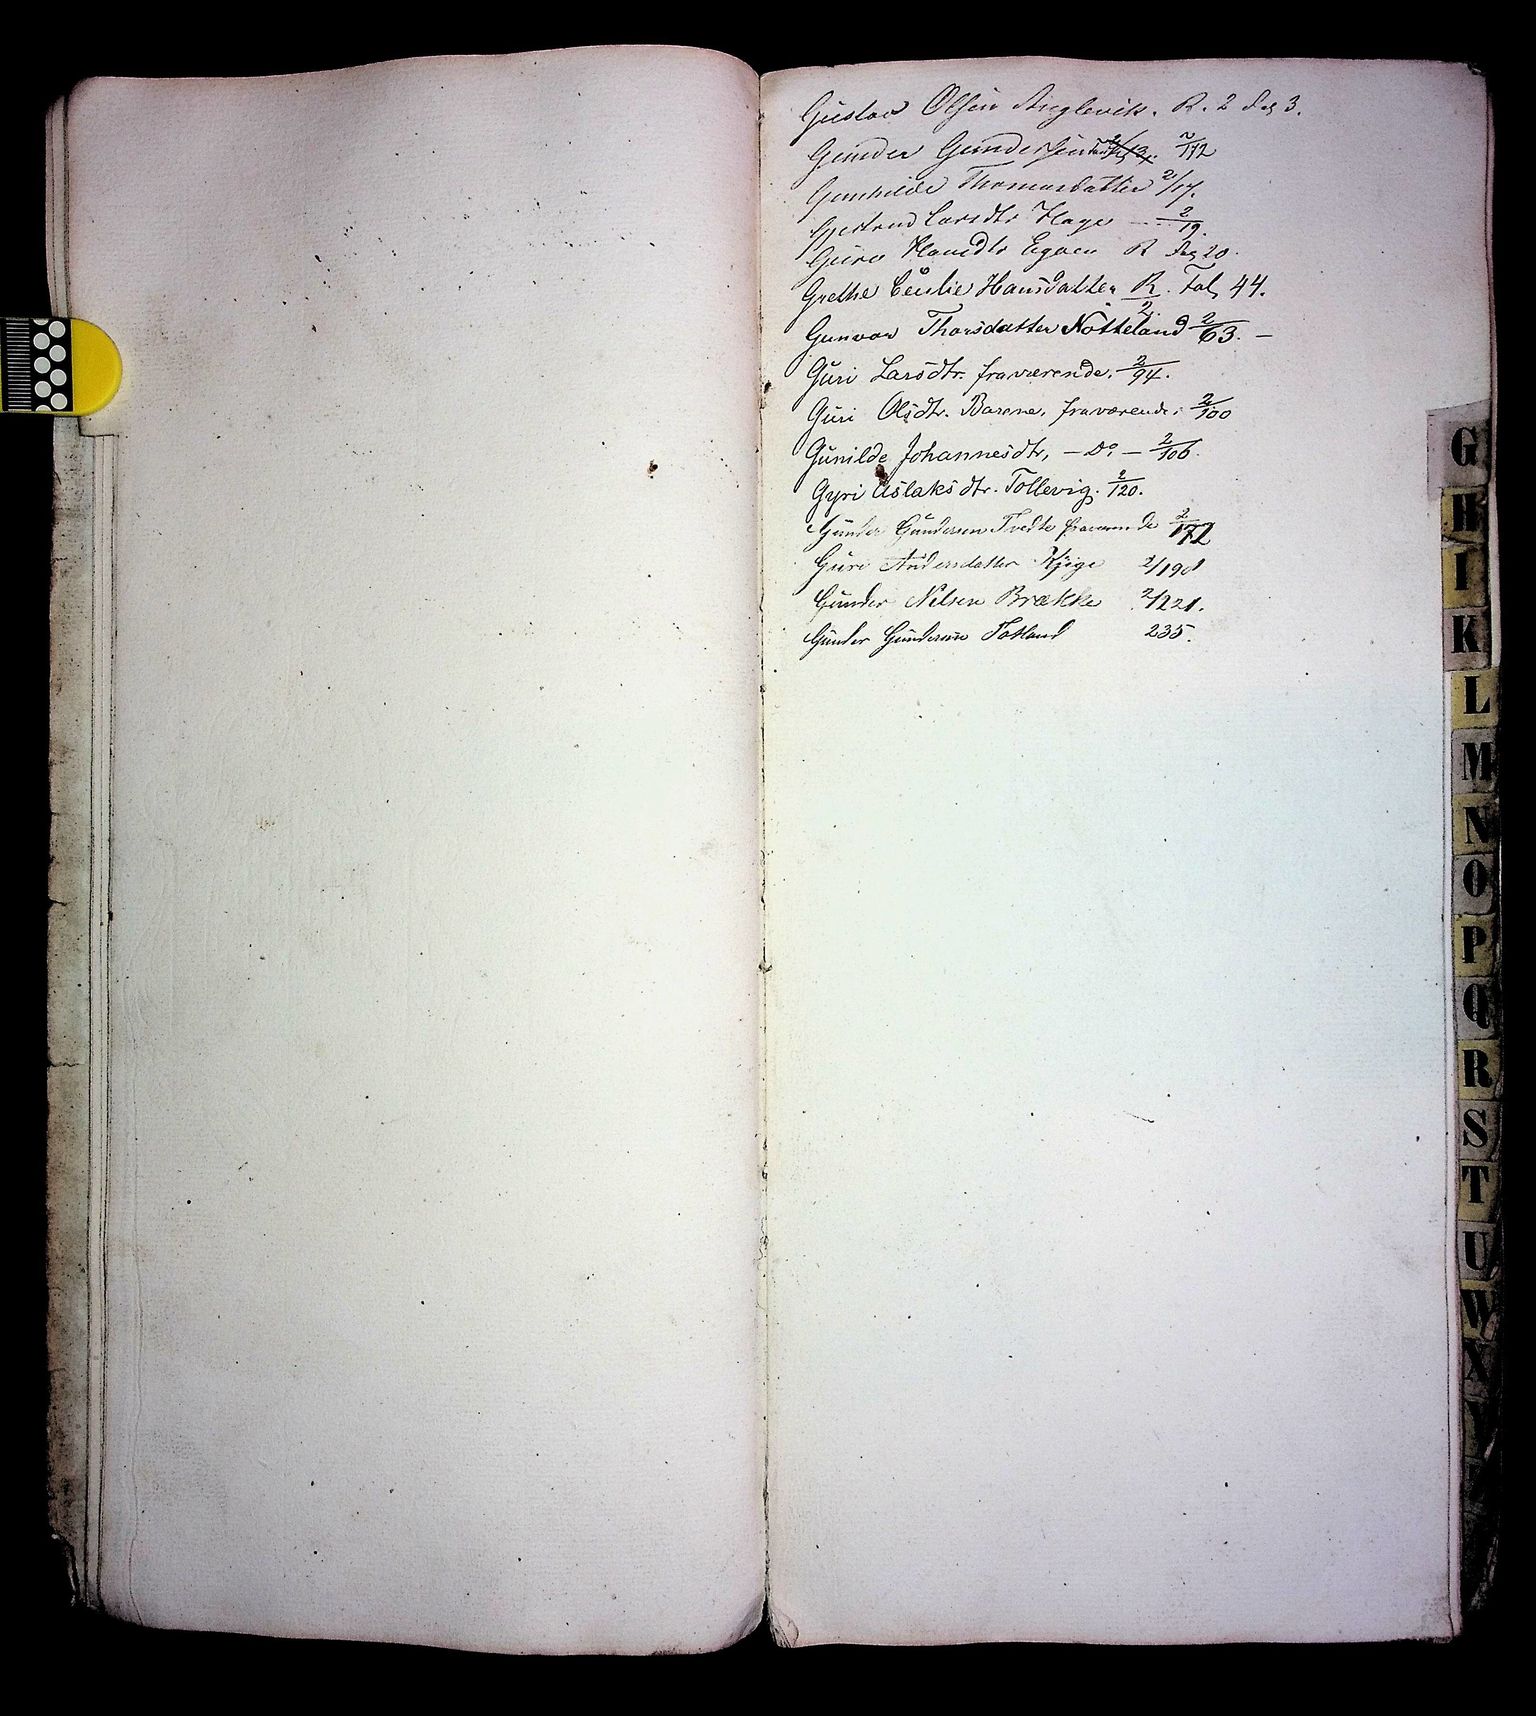 Gustav Olsen R. 2 Pag 3.
Gunder Gundersen 2/172
Gunhilde Thomasdatter 2/17.
Gjertrud Larsdtr Hage - 2/19.
Guro Hansdtr R Pag 20.
Grethe Cecilie Hansdatter R. 2. Fol. 44.
Gunvor Thorsdatter Nötteland 2/63. -
Guri Larsdtr. fraværende. 2/94.
Guri Olsdtr. fraværende. 2/100
Gunilde Johannesdtr, - Do. - 2/106.
Gyri Aslaksdtr. Tollevig. 2/120.
Gunder Gundersen Tvedte fraværende 2/172
Guri Andersdatter 2/198
Gunder Nilsen Brække 2/221.
Gunder Gundersen 235.
G
H
I
K
L
M
N
O
P
Q
R
S
T
U
W
X